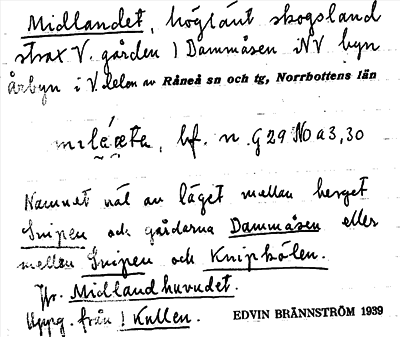 Midlandet, höglänt skogsland
strax V. gården 1 Dammåsen i NV byn
Årbyn i V. delen av Råneå sn och tg, Norrbottens län
bf. n. G 29 No a 3, 30
Namnet väl av läget mellan berget
Snipen och gårdarna Dammåsen eller
mellan Snipen och Knipkölen.
Jfr. Midlandhuvudet.
Uppg. från 1 Kullen. EDVIN BRÄNNSTRÖM 1939